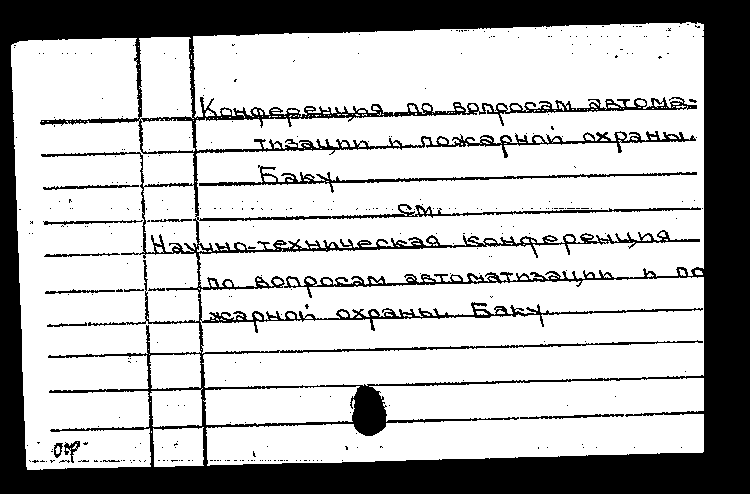 Конференция по вопросам автома-
тизации и пожарной охраны.
Баку.
см.
Научно-техническая конференция
по вопросам автоматизации и по
жарной охраны. Баку.